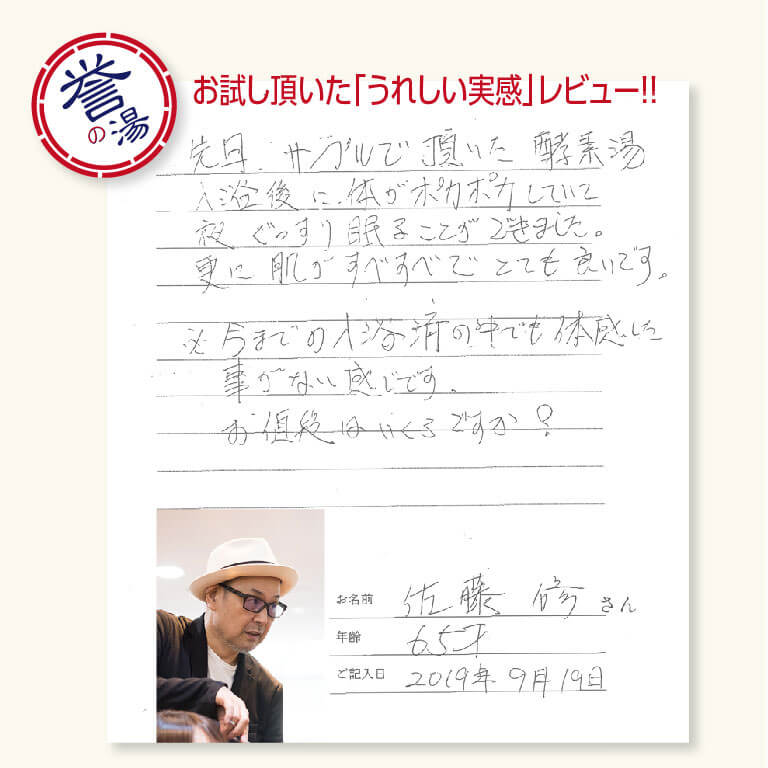 誉の湯
お試し頂いた「うれしい実感」レビュー!!
先日、サンプルで頂いた酵素湯
入浴後に体がポカポカしていて
夜ぐっすり眠ることができました。
更に肌がすべすべでとても良いです。
※今までの入浴済の中でも体感した
事がない感じです。
お値段はいくらですか?
お名前 佐藤 修 さん
年齢 65才
ご記入日 2019年9月19日